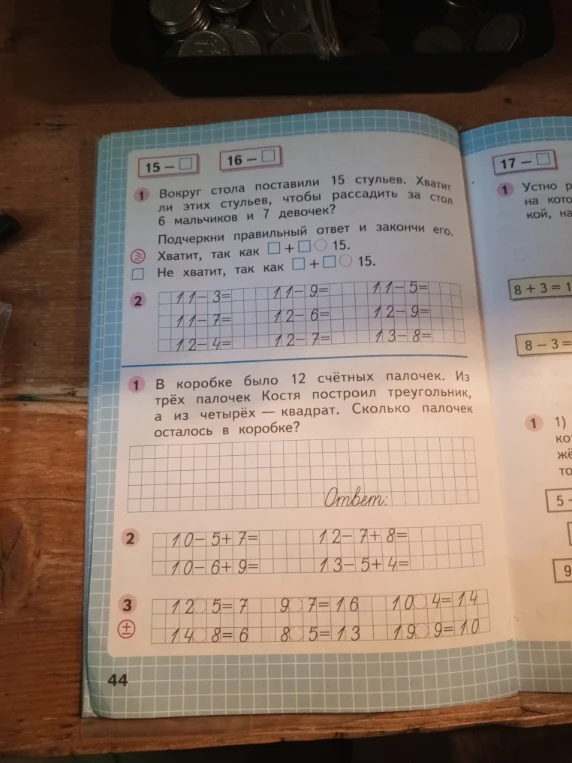 15 − □ 16 − □
1 Вокруг стола поставили 15 стульев. Хватит
ли этих стульев, чтобы рассадить за стол
6 мальчиков и 7 девочек?
Подчеркни правильный ответ и закончи его.
Хватит, так как □ + □ ○ 15.
Не хватит, так как □ + □ ○ 15.
2 11−3= 11−9= 11−5=
11−7= 12−6= 12−9=
12−4= 12−7= 13−8=
1 В коробке было 12 счётных палочек. Из
трёх палочек Костя построил треугольник,
а из четырёх — квадрат. Сколько палочек
осталось в коробке?
Ответ:
2 10−5+7= 12−7+8=
10−6+9= 13−5+4=
3 12○5=7 9○7=16 10○4=14
± 14○8=6 8○5=13 19○9=10
44
17 − □
1 Устно
на
кой,
8 + 3 = 1
8 − 3 =
1 1)
5
9